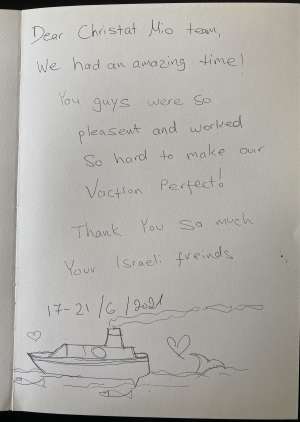 Dear Christat Mio team,
We had an amazing time!
You guys were so
pleasent and worked
So hard to make our
Vaction Perfect!
Thank You so much
Your Israeli freinds
17-21/6/2021